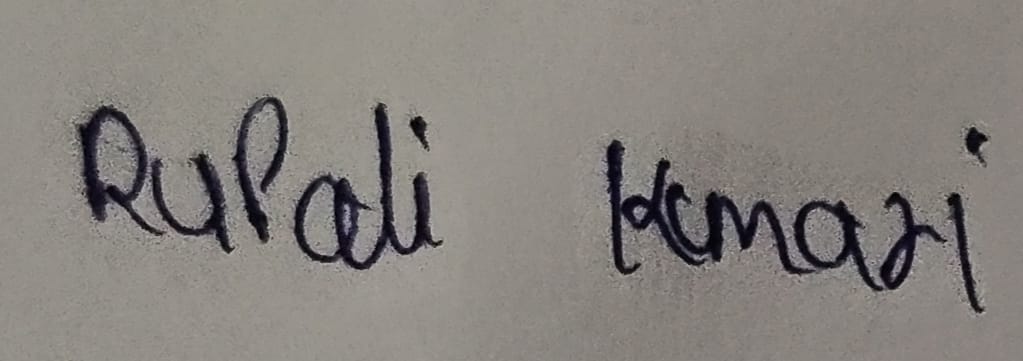 Rupali Kumari